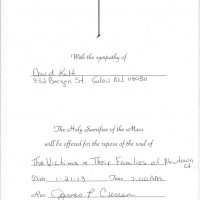 With the sympathy of
David Kolt
332 Bergen St. Glou NJ 08030
The Holy Sacrifice of the Mass
will be offered for the repose of the soul of
The Victims & Their Families of Newtown
Ct.
Date 1-21-13 Time 7:00 AM
Rev. James P Curran